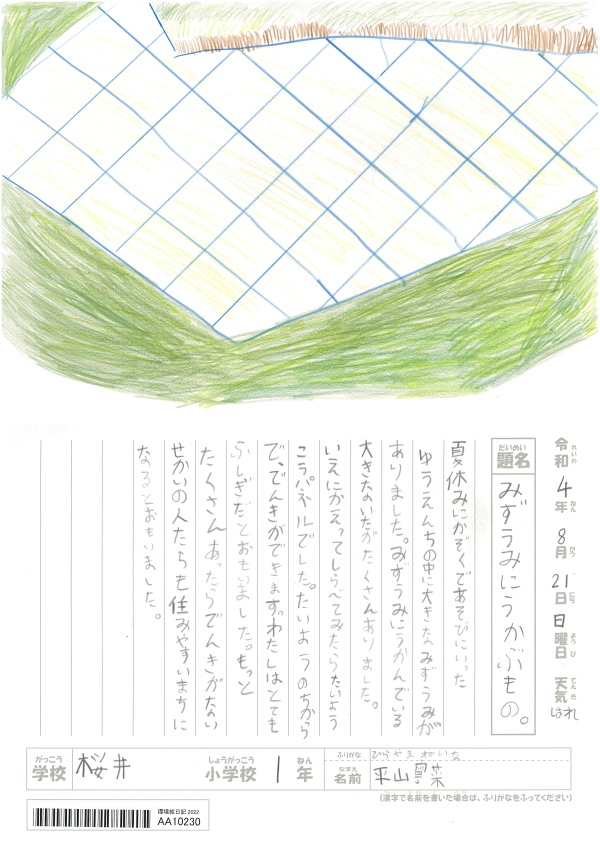 令和4年8月21日日曜日 天気はれ
れいの ねん がつ にち ようび てんき
だいめい
題名 みずうみにうかぶもの。
夏休みにかぞくであそびにいった
ゆうえんちの中に大きなみずうみが
ありました。みずうみにうかんでいる
大きないたがたくさんありました。
いえにかえってしらべてみたらたいよう
こうパネルでした。たいようのちから
で、でんきができます。わたしはとても
ふしぎだとおもいました。もっと
たくさんあったらでんきがない
せかいの人たちも住みやすいまちに
なるとおもいました。
がっこう しょうがっこう ねん
学校 桜井 小学校 1年
ふりがな ひらやま ねいな
なまえ
名前 平山寧菜
(漢字で名前を書いた場合は、ふりがなをふってください)
環境絵日記 2022
AA10230